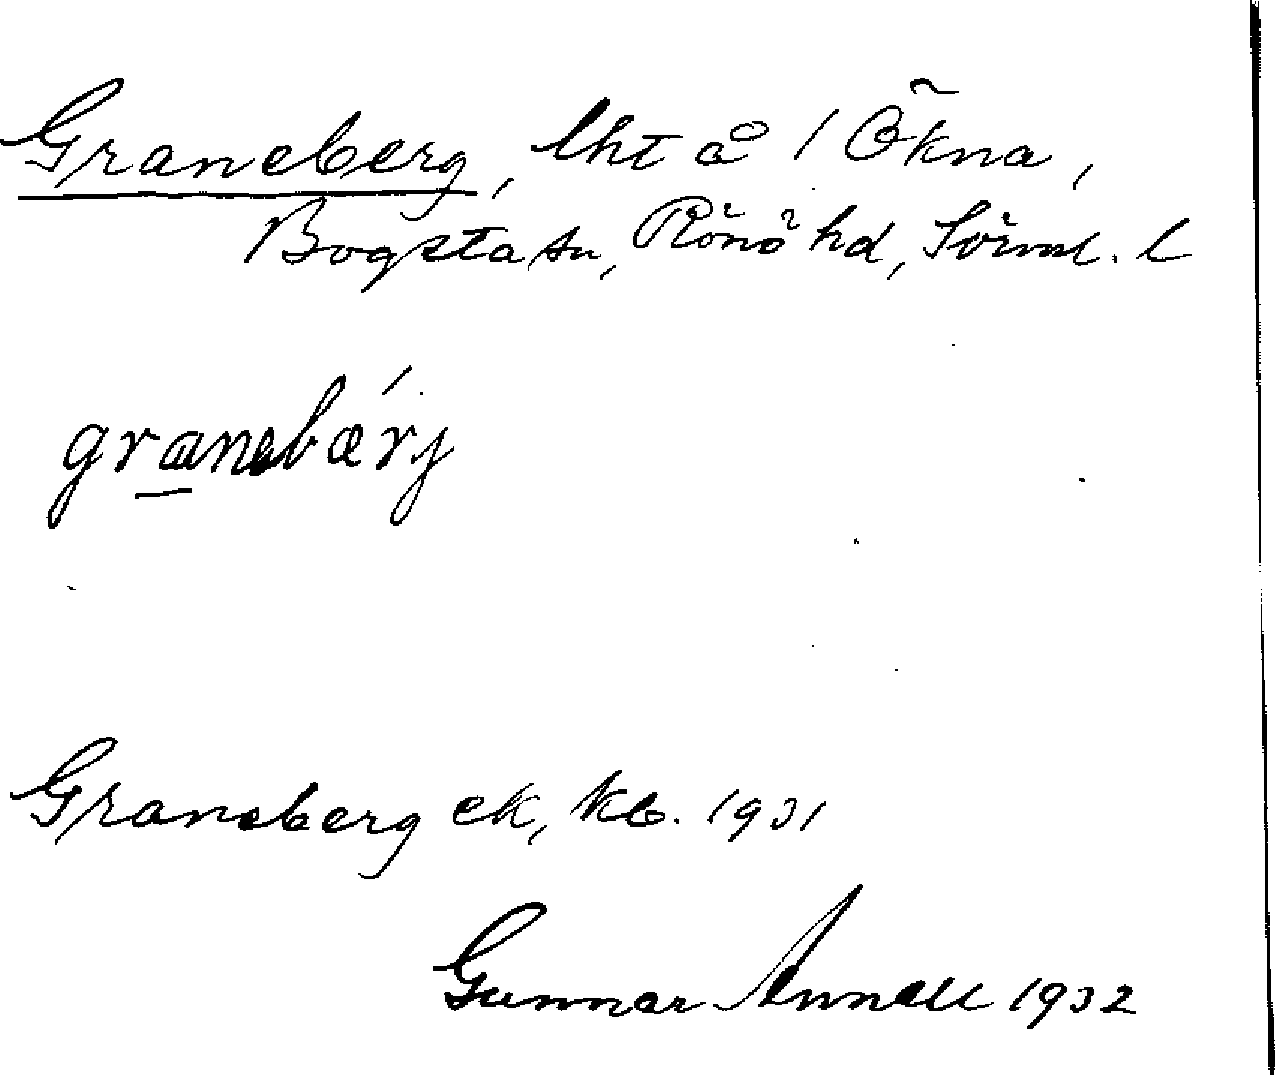 Graneberg, lht å 1 Ökna,
Bogsta sn, Rönö hd, Sörml. l
granebærj
Graneberg ek, kb. 1931
Gunnar Annell 1932